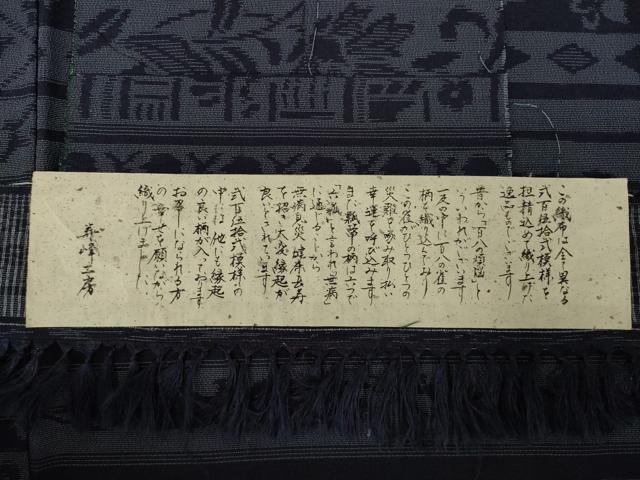 この織布は全て異なる
弐百伍拾弐模様を
丹精込めて織り上げた
逸品でございます
昔から「百八煩悩」と
いわれがございます
一反の中に百八の雀の
柄を織り込んでおり
この雀がひとつひとつの
災難を啄み取り払い
幸運を呼び込みます
また瓢箪の柄は六つで
「六瓢」と言われ「無病」
に通じることから
無病息災 健康長寿
を招き大変縁起が
良いといわれています
弐百伍拾弐模様の
中には他にも縁起
の良い柄が入っております
お召しになられる方
の幸せを願いながら
織り上げました
工房